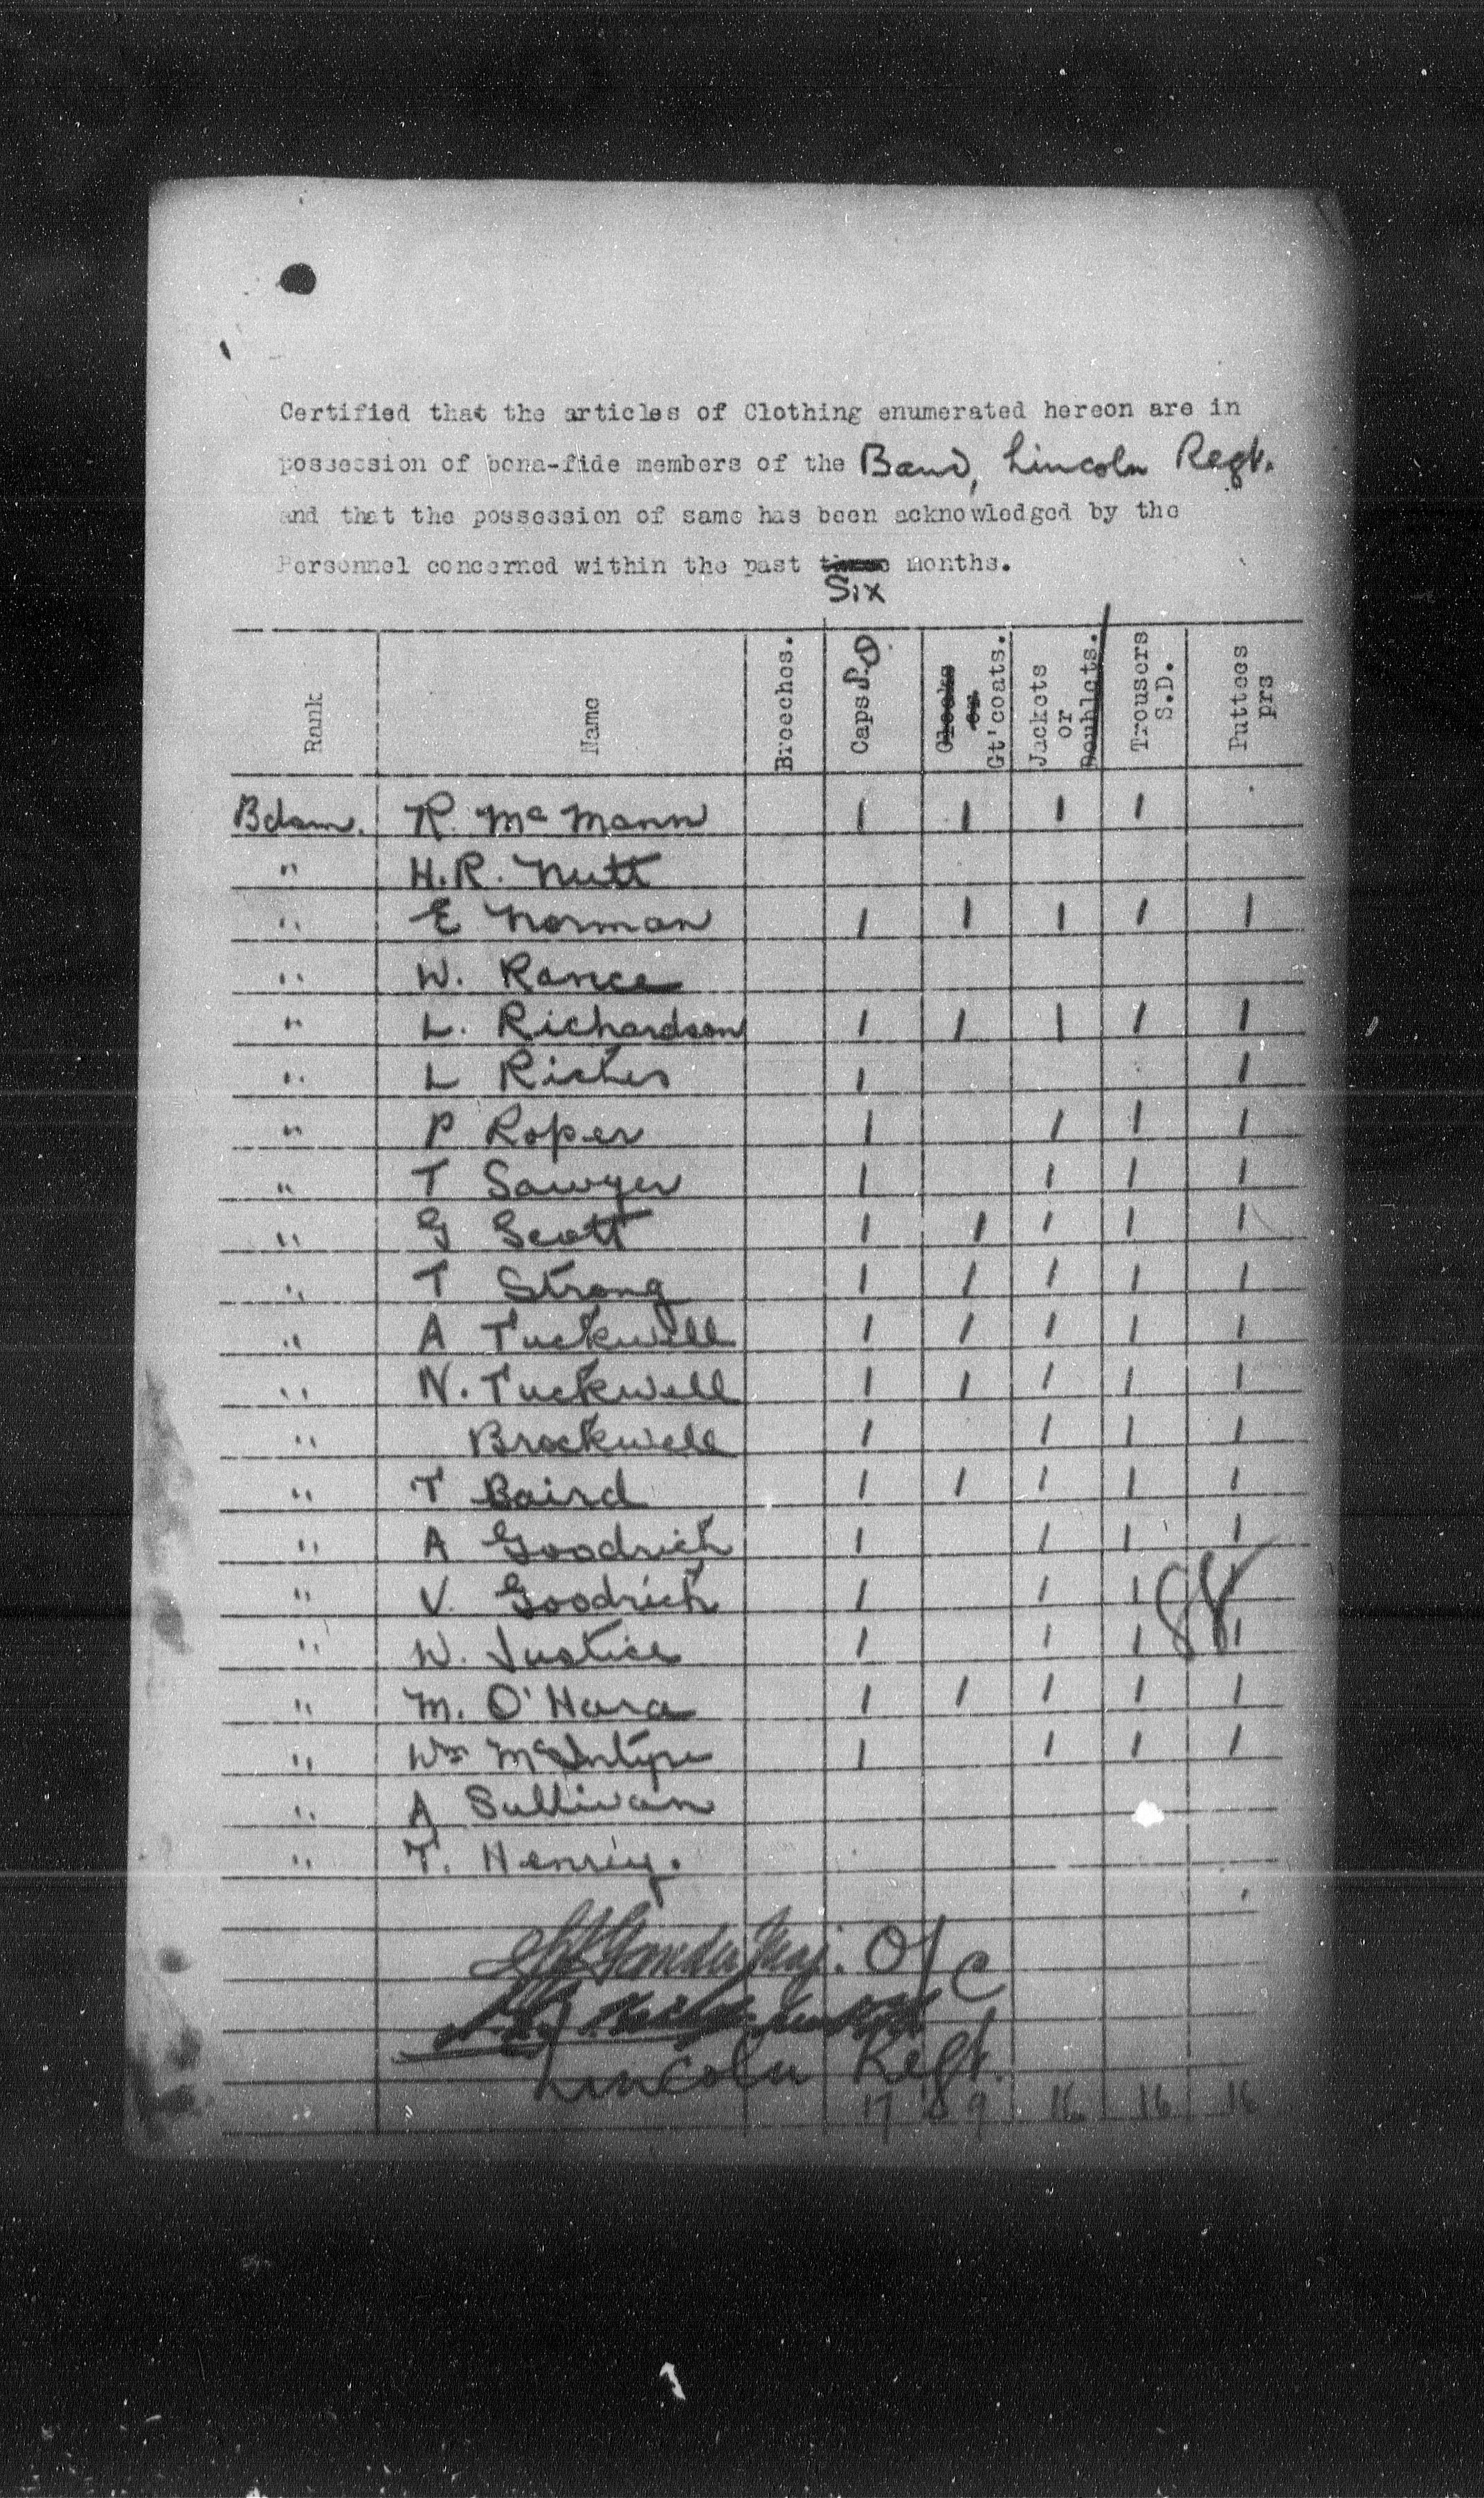 Certified that the articles of Clothing enumerated hereon are in
possession of bona-fide members of the Band, Lincoln Regt.
and that the possession of same has been acknowledged by the
Personnel concerned within the past three months.
Six
Rank Name Breeches. Caps S.D. Cloaks or Gt'coats. Jackets or Doublets. Trousers S.D. Puttees prs
Bdsm. R. Mc Mann 1 1 1 1
" H.R. Nutt
" E Norman 1 1 1 1 1
" W. Rance
" L. Richardson 1 1 1 1 1
" L Riches 1 1
" P Roper 1 1 1 1
" T Sawyer 1 1 1 1
" G Scott 1 1 1 1 1
" T Strong 1 1 1 1 1
" A Tuckwell 1 1 1 1 1
" N. Tuckwell 1 1 1 1 1
" Brockwell 1 1 1 1
" T Baird 1 1 1 1 1
" A Goodrich 1 1 1 1
" V. Goodrich 1 1 1 1
" W. Justice 1 1 1 1
" M. O'Hara 1 1 1 1 1
" Wm McIntyre 1 1 1 1
" A Sullivan
" T. Henry.
Maj. O/C
Lincoln Regt.
17 9 16 16 16